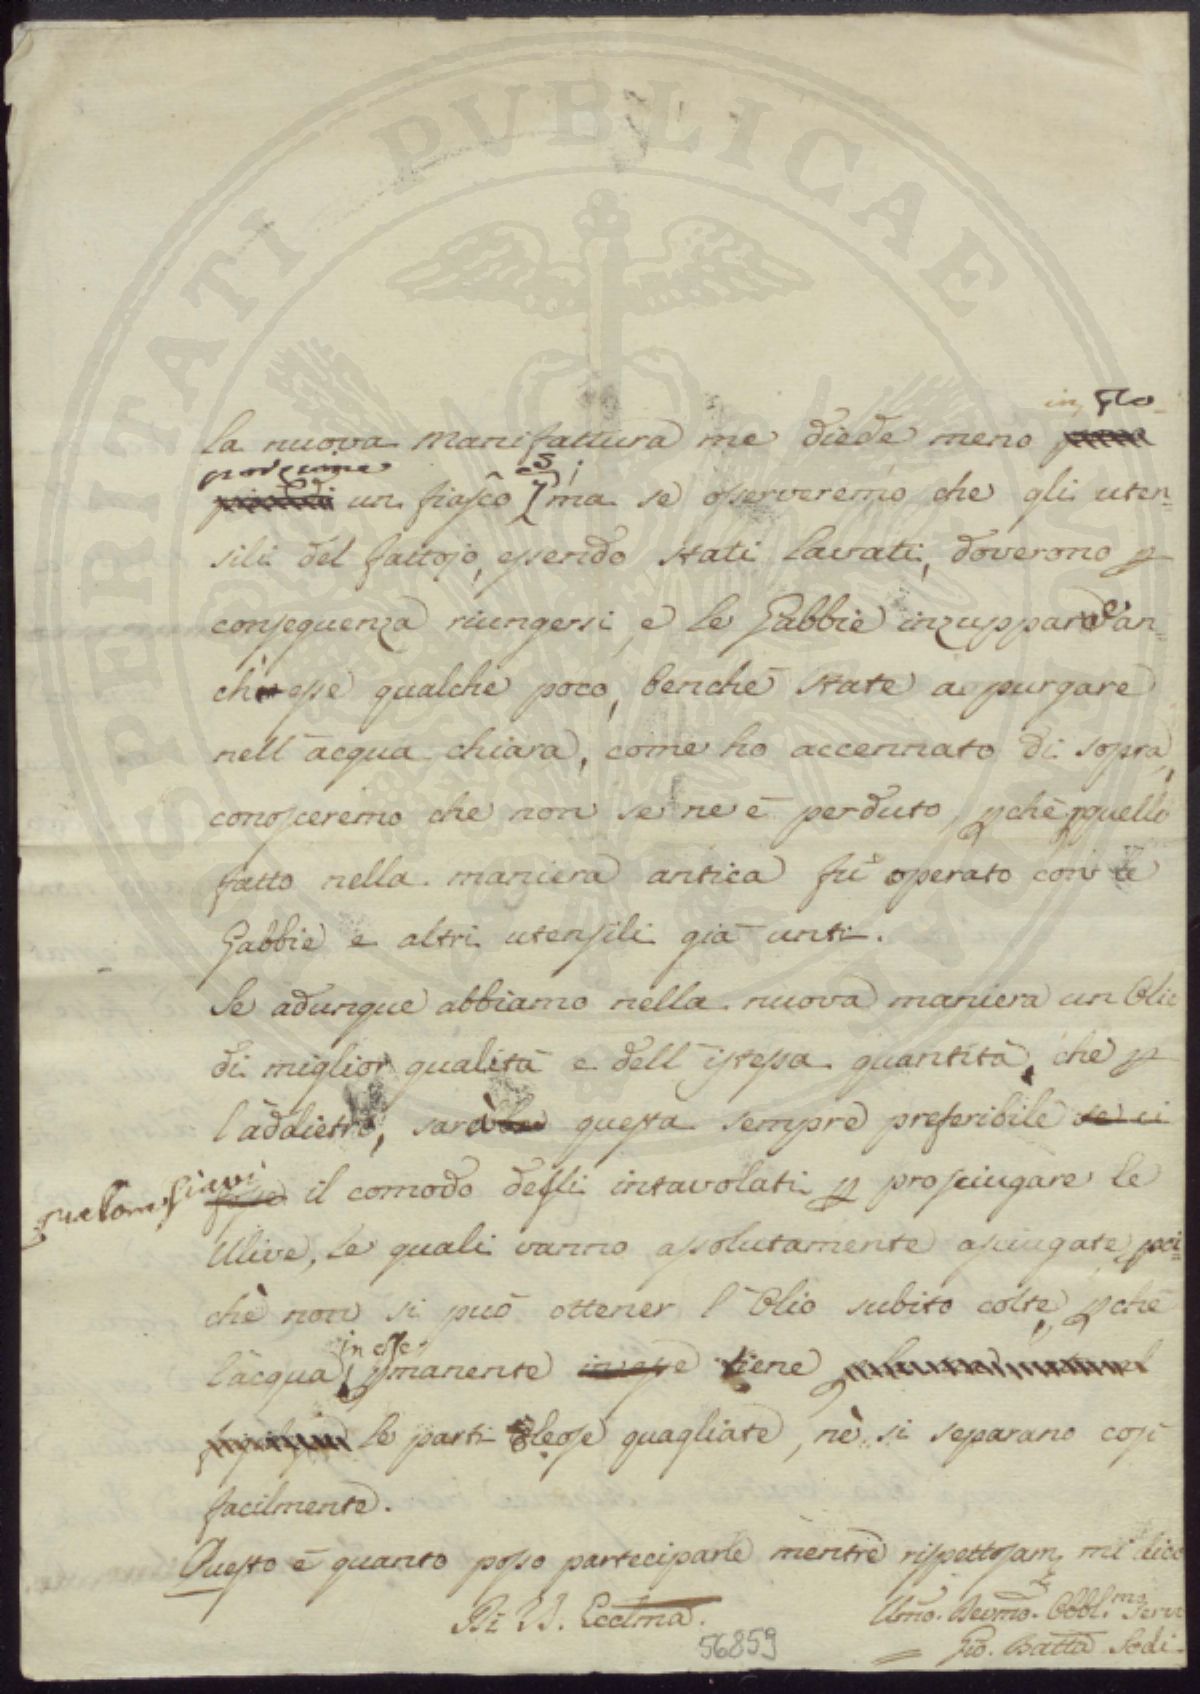 PROSPERITATI PUBLICAE
in
la nuova manifattura me diede meno
un fiasco ma se osserveremo che gli uten=
sili del fattojo, essendo stati lavati, doverono p
conseguenza riungersi, e le Gabbie inzuppare an=
ch esse qualche poco, benche state a purgare
nell' acqua chiara, come ho accennato di sopra,
conosceremo che non se ne è perduto, pchè quello
fatto nella maniera antica fù operato con le
Gabbie e altri utensili già unti.
Se adunque abbiamo nella nuova maniera un Olio
di miglior qualità e dell' istessa quantità, che p
l'addietro, sarà questa sempre preferibile se ci
fosse il comodo degli intavolati p prosciugare le
Ulive, le quali vanno assolutamente asciugate, poi=
chè non si può ottener l'Olio subito colte, pchè
in esse
l'acqua, pmanente in esse tiene
le parti oleose quagliate, nè si separano così
facilmente.
Questo è quanto posso parteciparle mentre rispettosam. mi dico
Di V. Ecclma.
Umo. Devmo. Obbl.mo Serv
56859
Gio. Batta Sodi